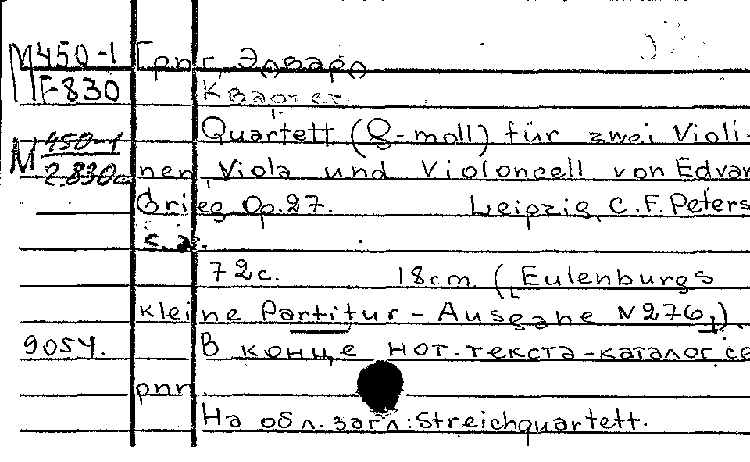 М450-1 Григ, Эдвард
Г-830 Квартет
Quartett (G-moll) für zwei Violi-
М 450-1
2.830а nen, Viola und Violoncell von Edvar
Grieg Op.27. Leipzig, C.F.Peters
s.a.
72с. 18см. (Eulenburgs
kleine Partitur-Ausgabe N276)
9054. В конце нот.текста-каталог се
рии
На обл.загл.:Streichquartett.